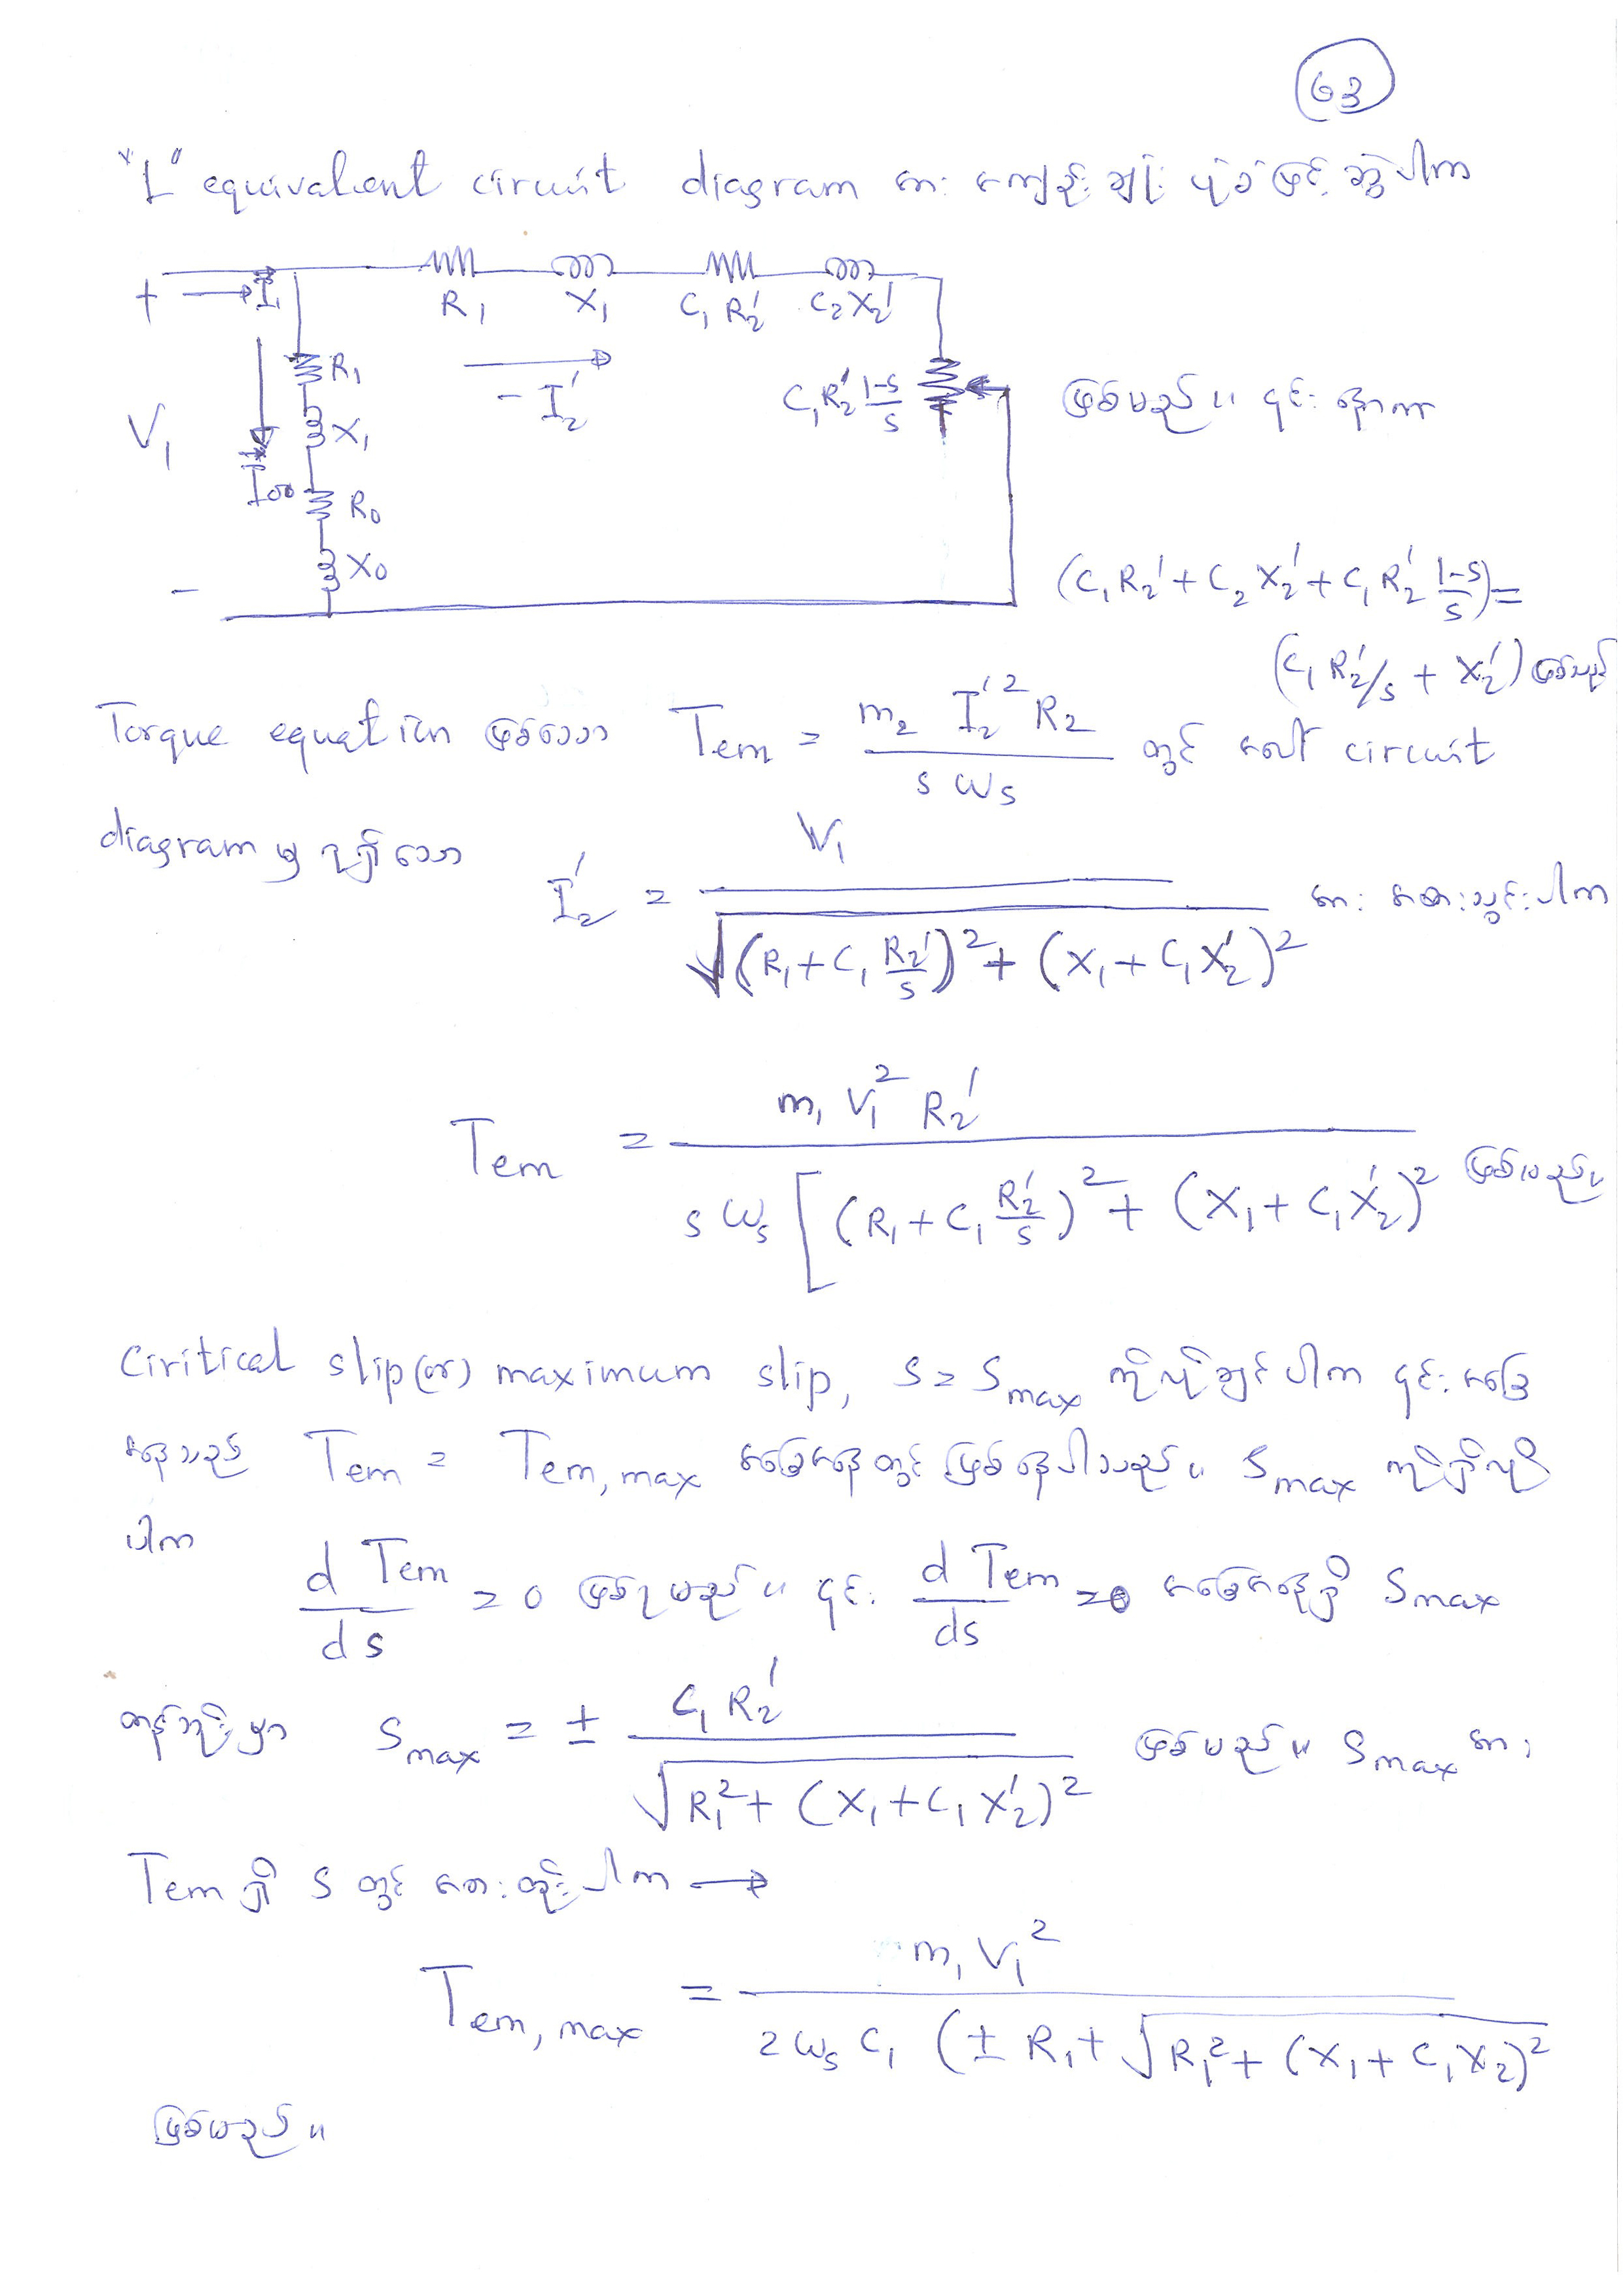 ၆၃
"L" equivalent circuit diagram အား အကျဉ်းချုံး ပုံစံဖြင့် ဆွဲပါက
+ I₁ R₁ X₁ C₁ R₂' C₂ X₂'
R₁ - I₂' C₁ R₂' (1-S)/S ဖြစ်မည်။ ၎င်းနောက်
V₁ X₁
I₀₀ R₀
- X₀ (C₁ R₂' + C₂ X₂' + C₁ R₂' (1-S)/S) =
(C₁ R₂'/s + X₂') ဖြစ်သည်
Torque equation ဖြစ်သော Tem = m₂ I₂'² R₂ / s ωs တွင် အပေါ် circuit
diagram မှ ရရှိသော I₂' = V₁ / √((R₁ + C₁ R₂'/s)² + (X₁ + C₁ X₂')²) အား အစားသွင်းပါက
Tem = m₁ V₁² R₂' / s ωs [(R₁ + C₁ R₂'/s)² + (X₁ + C₁ X₂')² ဖြစ်မည်။
Ciritical slip (or) maximum slip, S = Smax ကိုလိုချင်ပါက ၎င်းအခြေ
အနေသည် Tem = Tem, max အခြေအနေတွင် ဖြစ်နေပါသည်။ Smax ကိုရှိလို
ပါက d Tem / ds = 0 ဖြစ်ရမည်။ ၎င်း d Tem / ds = 0 အခြေအနေရှိ Smax
တန်ဘိုးမှာ Smax = ± C₁ R₂' / √(R₁² + (X₁ + C₁ X₂')²) ဖြစ်မည်။ Smax အား
Tem ရှိ S တွင် အစားထိုးပါက →
Tem, max = m₁ V₁² / 2 ωs C₁ (± R₁ + √(R₁² + (X₁ + C₁ X₂)²
ဖြစ်မည်။